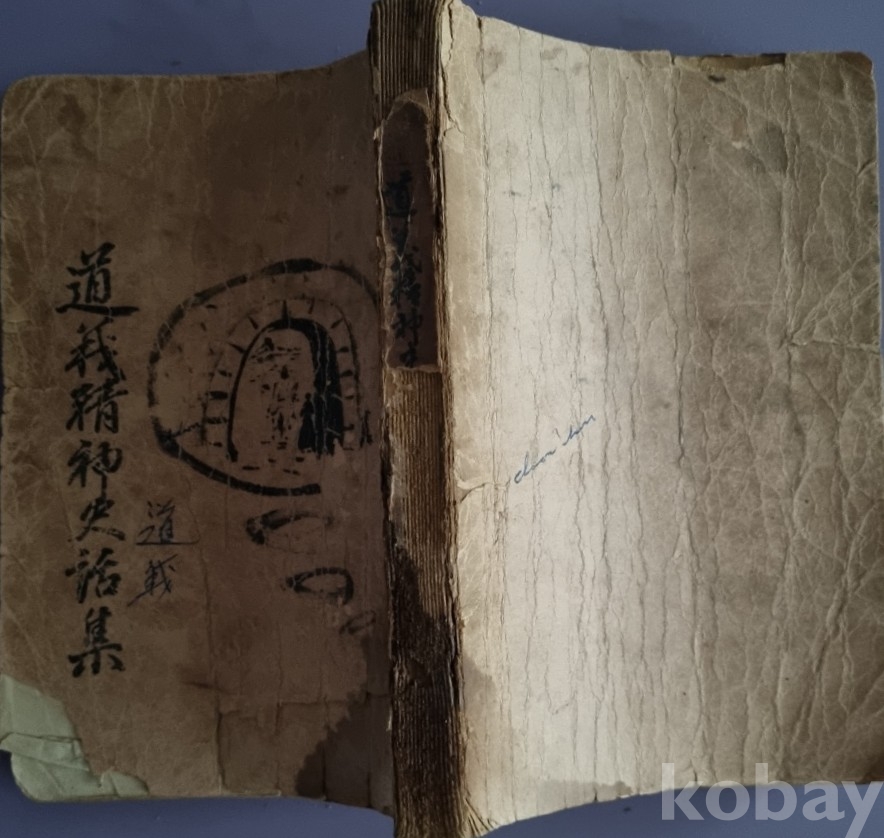 道義精神史話集
道義
道義精神
kobay